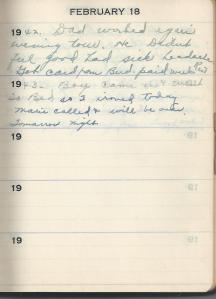 FEBRUARY 18
1942. Dad worked again
evening tour. He Didnt
feel good had sick headache
Got card from Bud. paid milk
1943. Boys came out
to Bed as I ironed today
Marie called & will be over
Tomorrow night.
19
19
19